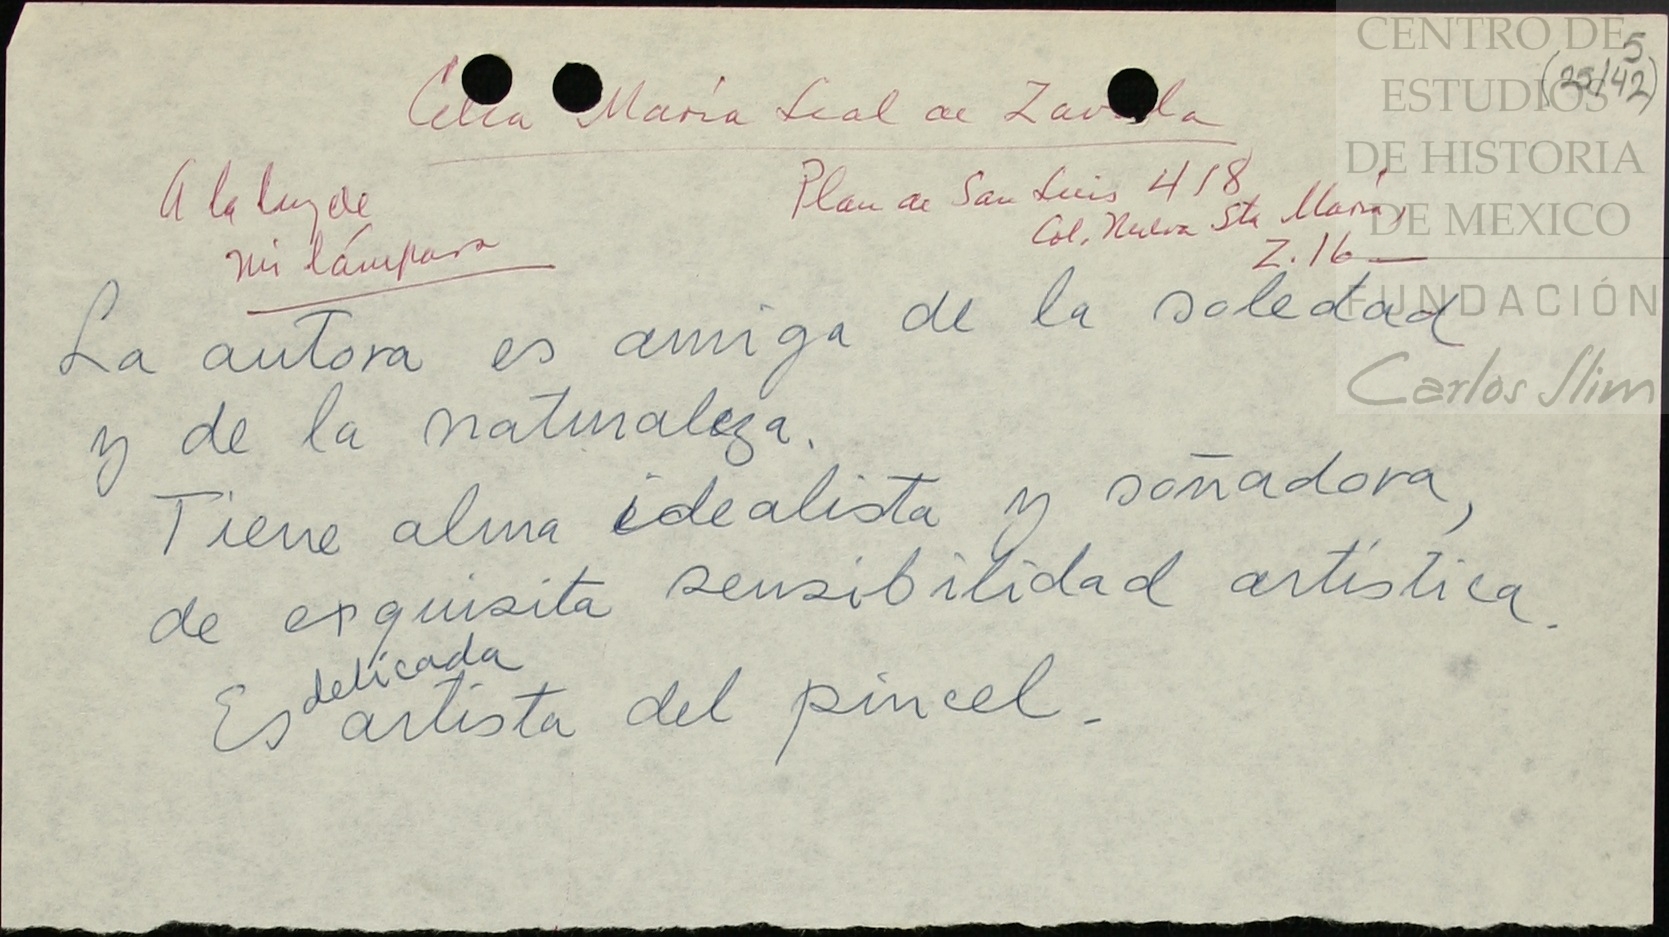 Celia María Leal de Zavala
A la luz de
mi lámpara
Plan de San Luis 418
Col. Nueva Sta María,
Z.16
La autora es amiga de la soledad
y de la naturaleza.
Tiene alma idealista y soñadora,
de exquisita sensibilidad artística.
Es delicada artista del pincel.
5
(25/42)
CENTRO DE
ESTUDIOS
DE HISTORIA
DE MEXICO
FUNDACIÓN
Carlos Slim